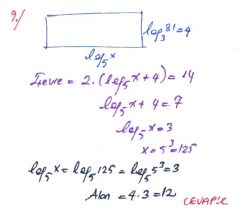 9./
log₃81=4
log₅x
Çevre = 2.(log₅x+4) = 14
log₅x+4=7
log₅x=3
x=5³=125
log₅x=log₅125=log₅5³=3
Alan = 4.3=12
CEVAP:C